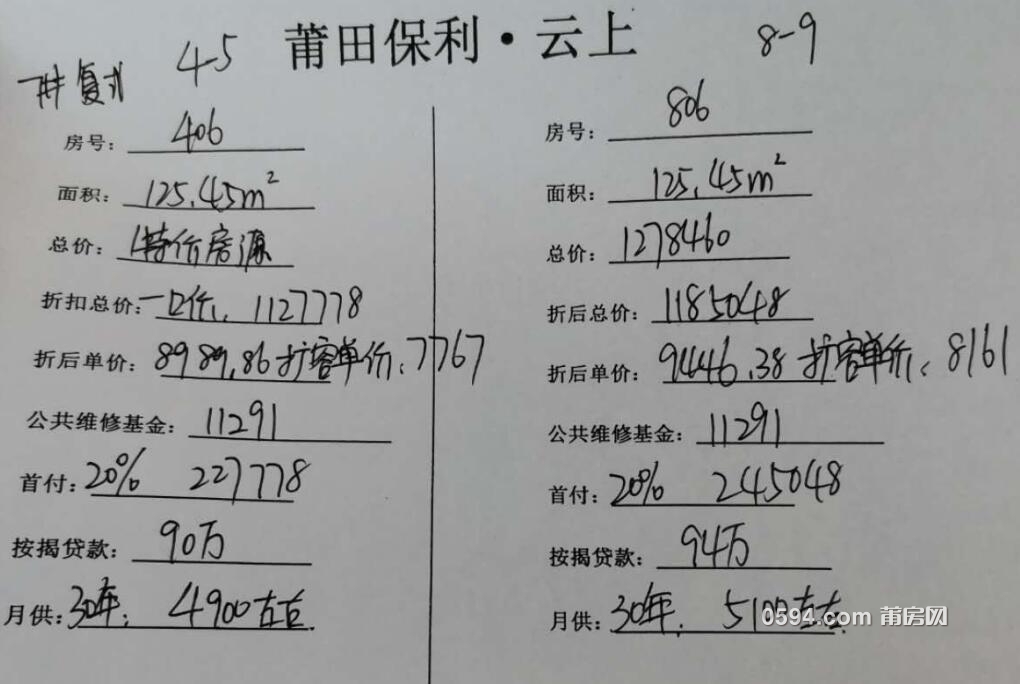 莆田保利·云上
4-5
8-9
复式
房号: 406
面积: 125.45m²
总价: 特价房源
折扣总价: 一口价, 1127778
折后单价: 8989.86 扩容单价: 7767
公共维修基金: 11291
首付: 20% 227778
按揭贷款: 90万
月供: 30年, 4900左右.
房号: 806
面积: 125.45m²
总价: 1278460
折后总价: 1185048
折后单价: 9446.38 扩容单价: 8161
公共维修基金: 11291
首付: 20% 245048
按揭贷款: 94万
月供: 30年, 5100左右.
0594.com 莆房网